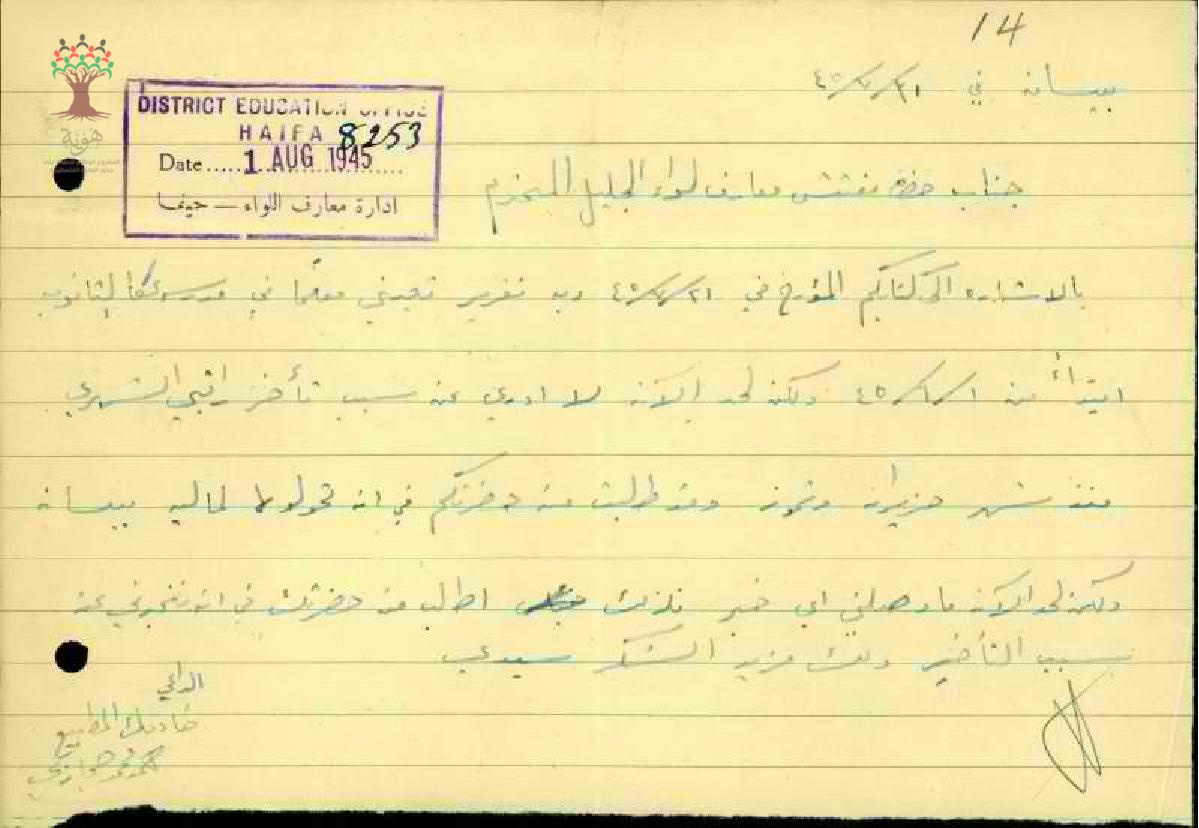 14
بيسان في ٤٥/٧/٣١
DISTRICT EDUCATION OFFICE
HAIFA 8253
Date..... 1 AUG 1945
ادارة معارف اللواء — حيفا
هوية
جناب حضرة مفتش معارف لواء الجليل المحترم
بالاشاره الى كتابكم المؤرخ في ٤٥/٧/٢١ وبه تقرير تعييني معلمًا في مدرسة عكا الثانويه
ابتداءً من ٤٥/٦/١ ولكن لحد الآن لا ادري عن سبب تأخر راتبي الشهري
منذ شهر حزيران وتموز وقد طلبت من حضرتكم في ان تحولوها لماليه بيسان
ولكن لحد الآن ما وصلني اي خبر فلذلك اطلب من حضرتك في ان تخبرني عن
سبب التأخير ولك مزيد الشكر سيدي
الداعي
خادمك المطيع
محمد حجازي